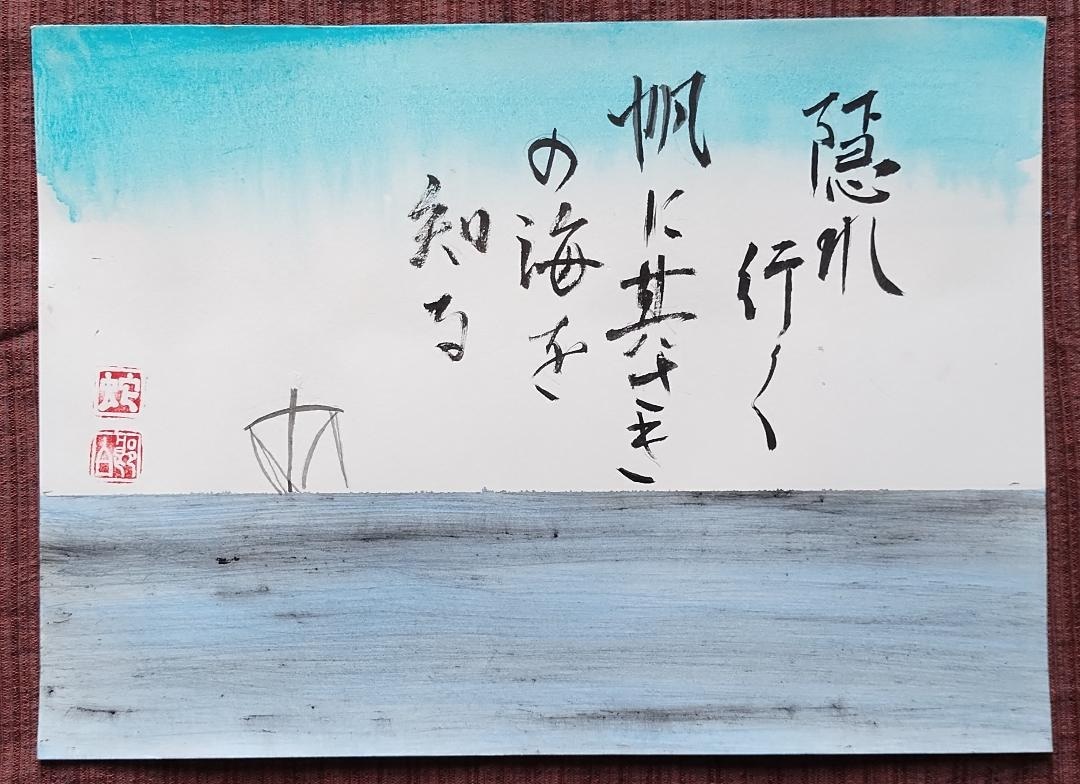 隠れ
行く
帆に其さき
の海を
知る
蛇